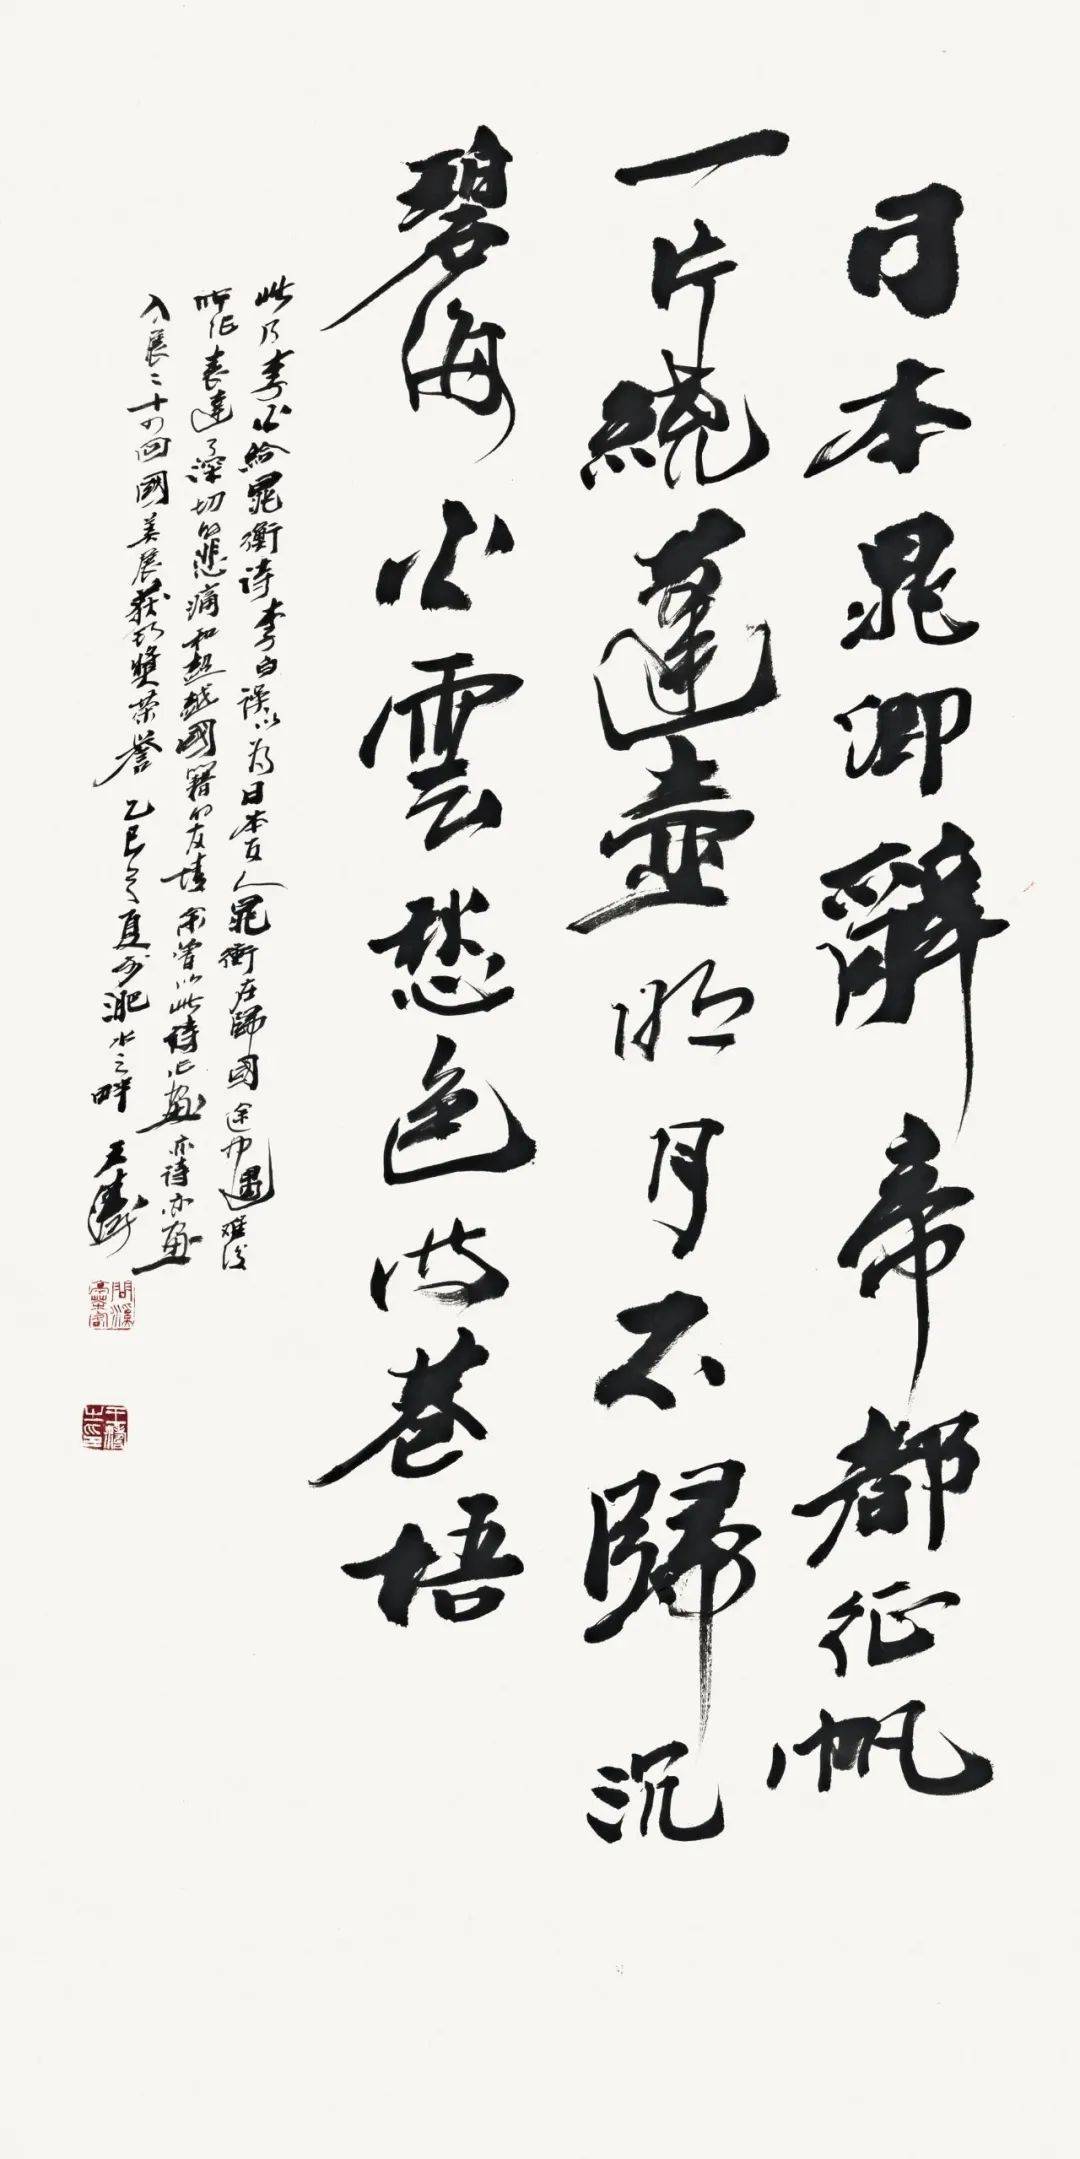 日本晁卿辭帝都征帆
一片繞蓬壺明月不歸沉
碧海白雲愁色滿蒼梧
此乃李白給晁衡诗李白误以为日本友人晁衡在歸國途中遇难後
所作表達了深切的悲痛和超越國籍的友情余曾以此诗作画亦诗亦画
入展二十四回國美展获獎荣誉 乙巳之夏於淝水之畔 王涛
王濤之印